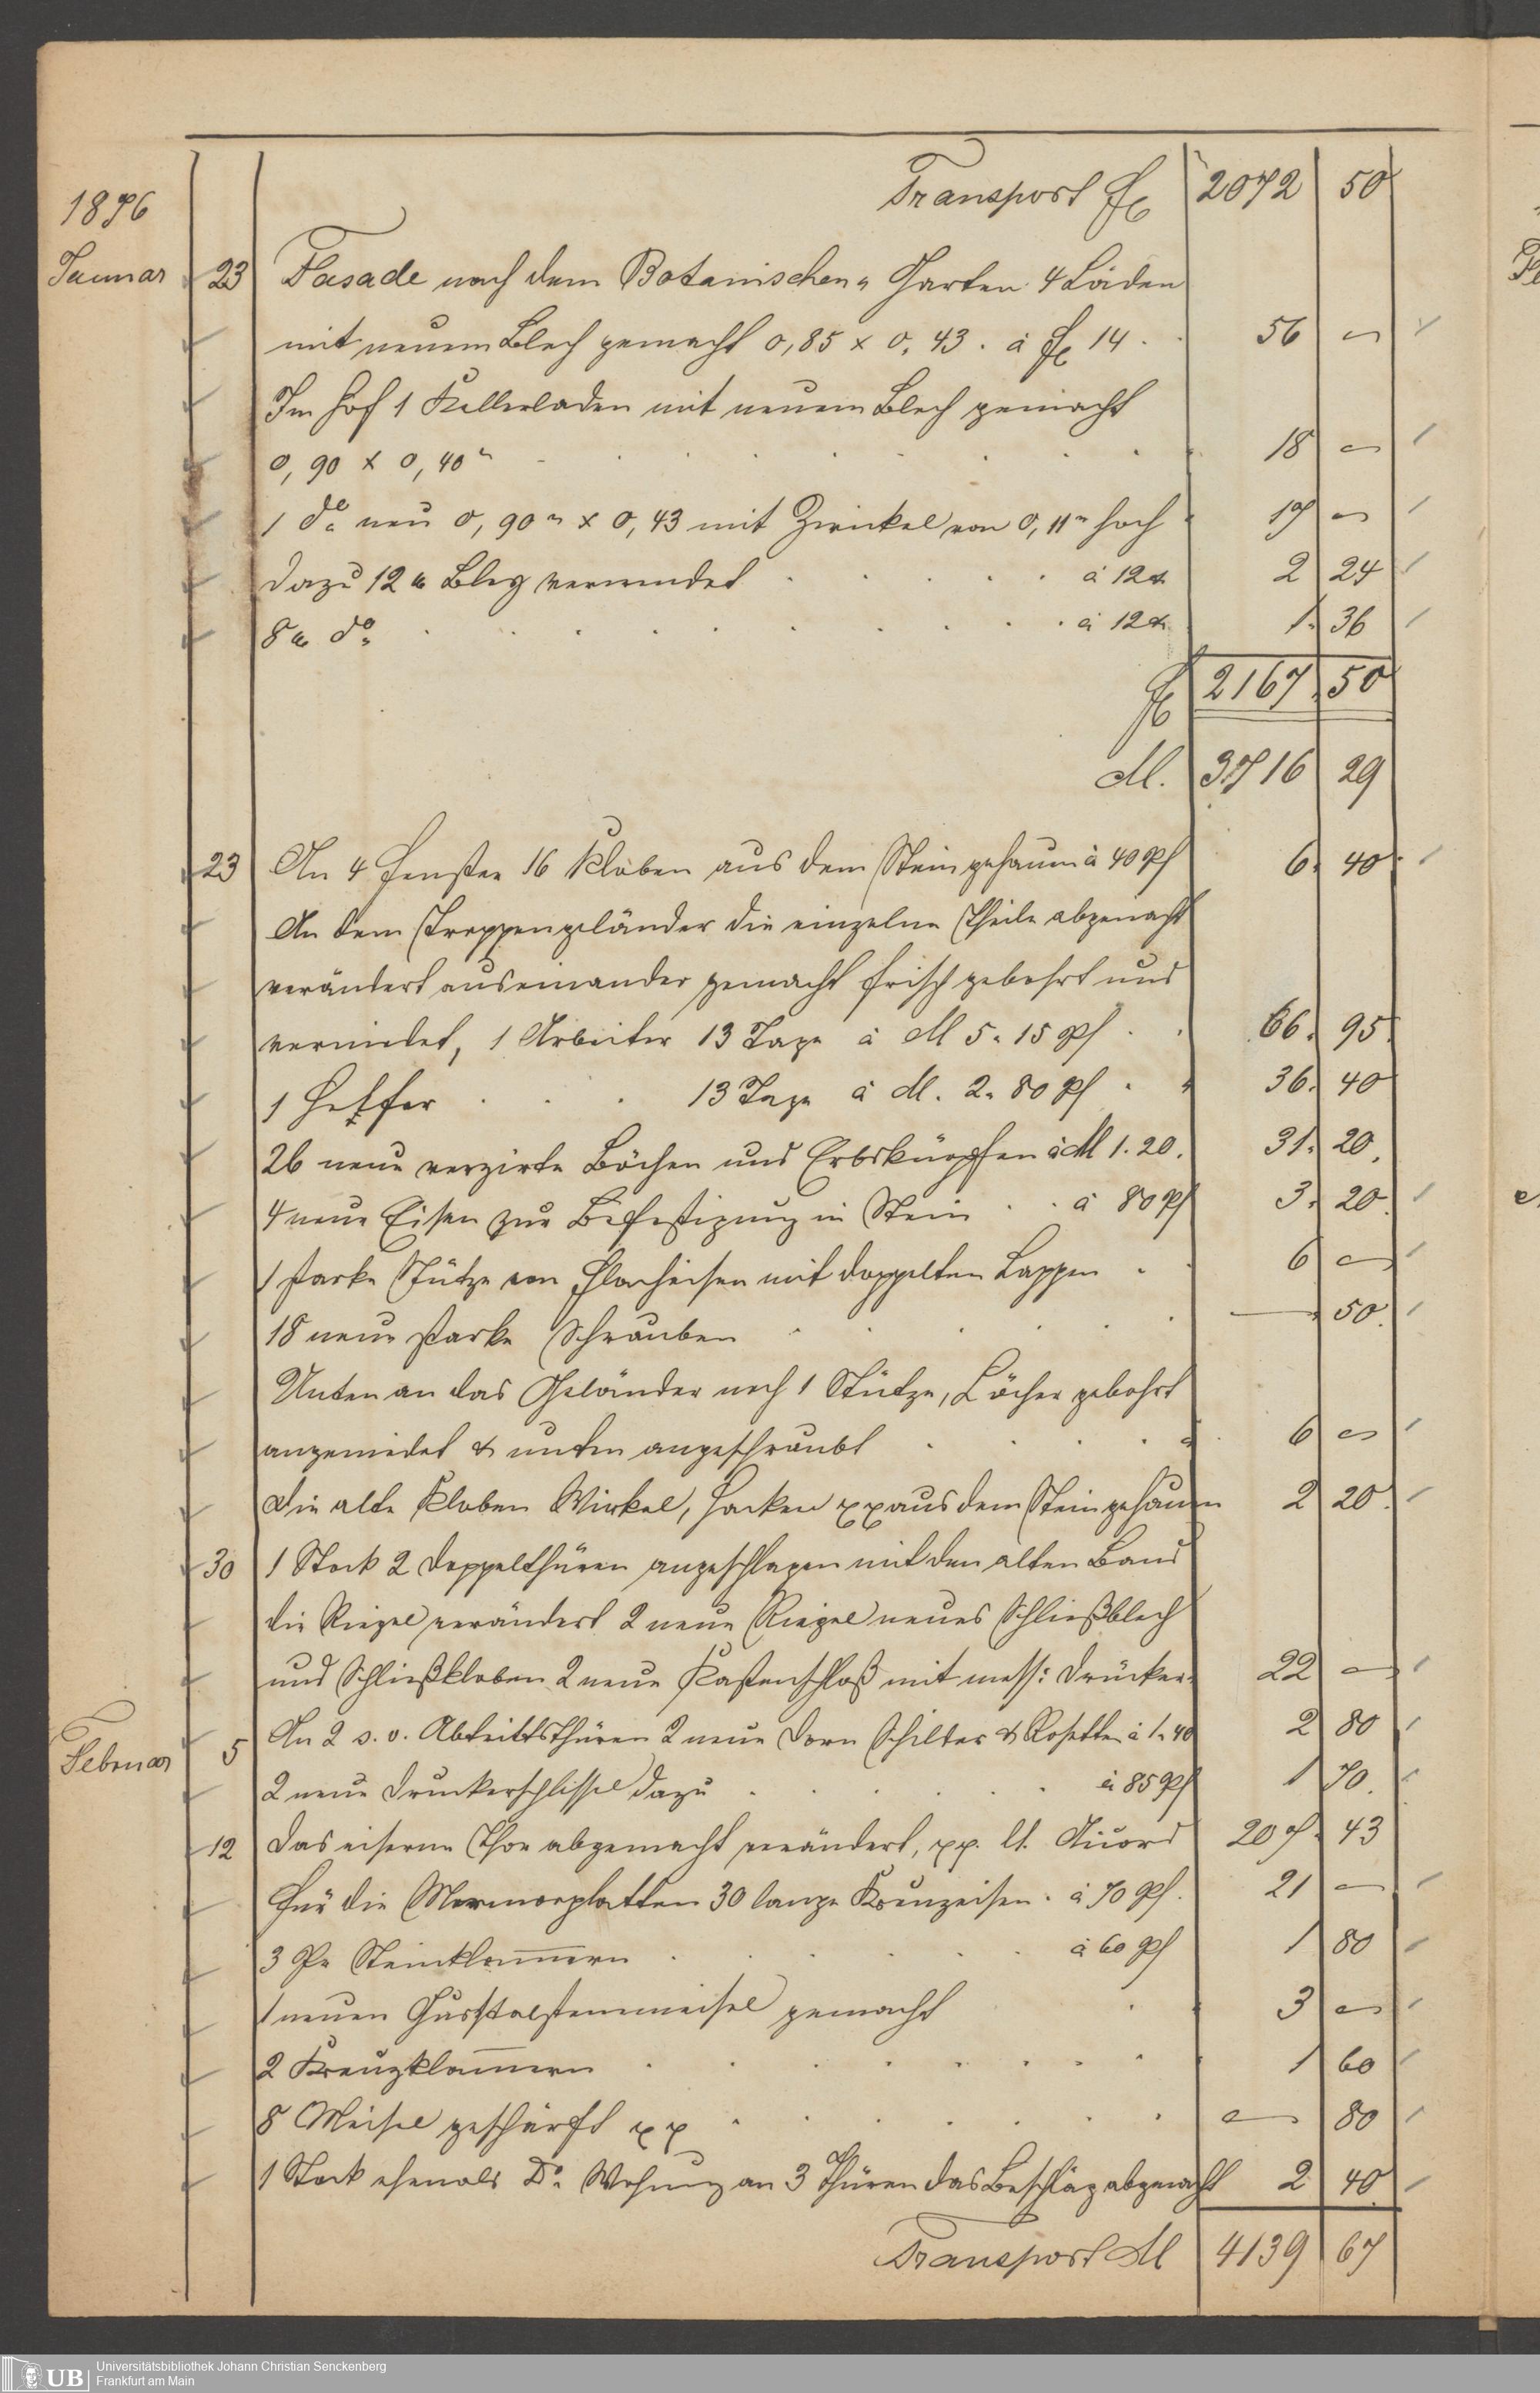 Transport fl 2072 50
1876
Januar 23 Fasade nach dem Botanischen Garten 4 Läden
mit neuem Blech gemacht 0,85 x 0,43. à fl 14 . . 56 —
Im Hof 1 Kellerladen mit neuem Blech gemacht
0,90 x 0,40 m 18 —
1 do neu 0,90 m x 0,43 mit Zwickel von 0,11 m hoch 17 —
dazu 12 Bley verwendet à 12 x 2 24
8 do à 12 x 1. 36
fl 2167 50
M. 3716 29
23 An 4 Fenster 16 Kloben aus dem Stein gehaun à 40 Pf 6. 40
An dem Treppengeländer die einzelne Theile abgemacht
verändert auseinander gemacht frisch gebohrt und
vernietet, 1 Arbeiter 13 Tage à M 5. 15 Pf 66. 95
1 Helfer . . . 13 Tage à M. 2. 80 Pf 36. 40
26 neue verzirte Böchen und Erbsknöpfen à M 1.20. 31. 20
4 neue Eisen zur Befestigung in Stein à 80 Pf 3. 20
1 starke Stütze von Flacheisen mit doppelten Lappen 6 —
18 neue starke Schrauben — 50
Unten an das Geländer noch 1 Stütze, Löcher gebohrt
angenietet & unten angeschraubt 6 —
Die alte Kloben Winkel, Hacken xx aus dem Stein gehauen 2 20
30 1 Stock 2 Doppelthüren angeschlagen mit den alten Band
die Riegel verändert 2 neue Riegel neues Schließblech
und Schließkloben 2 neue Kastenschloß mit mess: Drücker 22 —
Februar 5 An 2 s. v. Abtrittsthüren 2 neue Dorn Schilter & Rosetten à 1. 40 2 80
2 neue Druckerschlissel dazu à 85 Pf 1 70
12 Das eiserne Thor abgemacht verändert, pp. lt. Accord 207. 43
Für die Marmorplatten 30 lange Kreuzeisen . à 70 Pf. 21 —
3 Pr Steinklammern à 60 Pf 1 80
1 neuen Gusstalsteinmeisel gemacht 3 —
2 Kreuzklammern 1 60
8 Meisel geschärft xx — 80
1 Stock ehemals Dr. Wohnung an 3 Thüren das Beschläg abgemacht 2 40
Transport M 4139 67
UB
Universitätsbibliothek Johann Christian Senckenberg
Frankfurt am Main